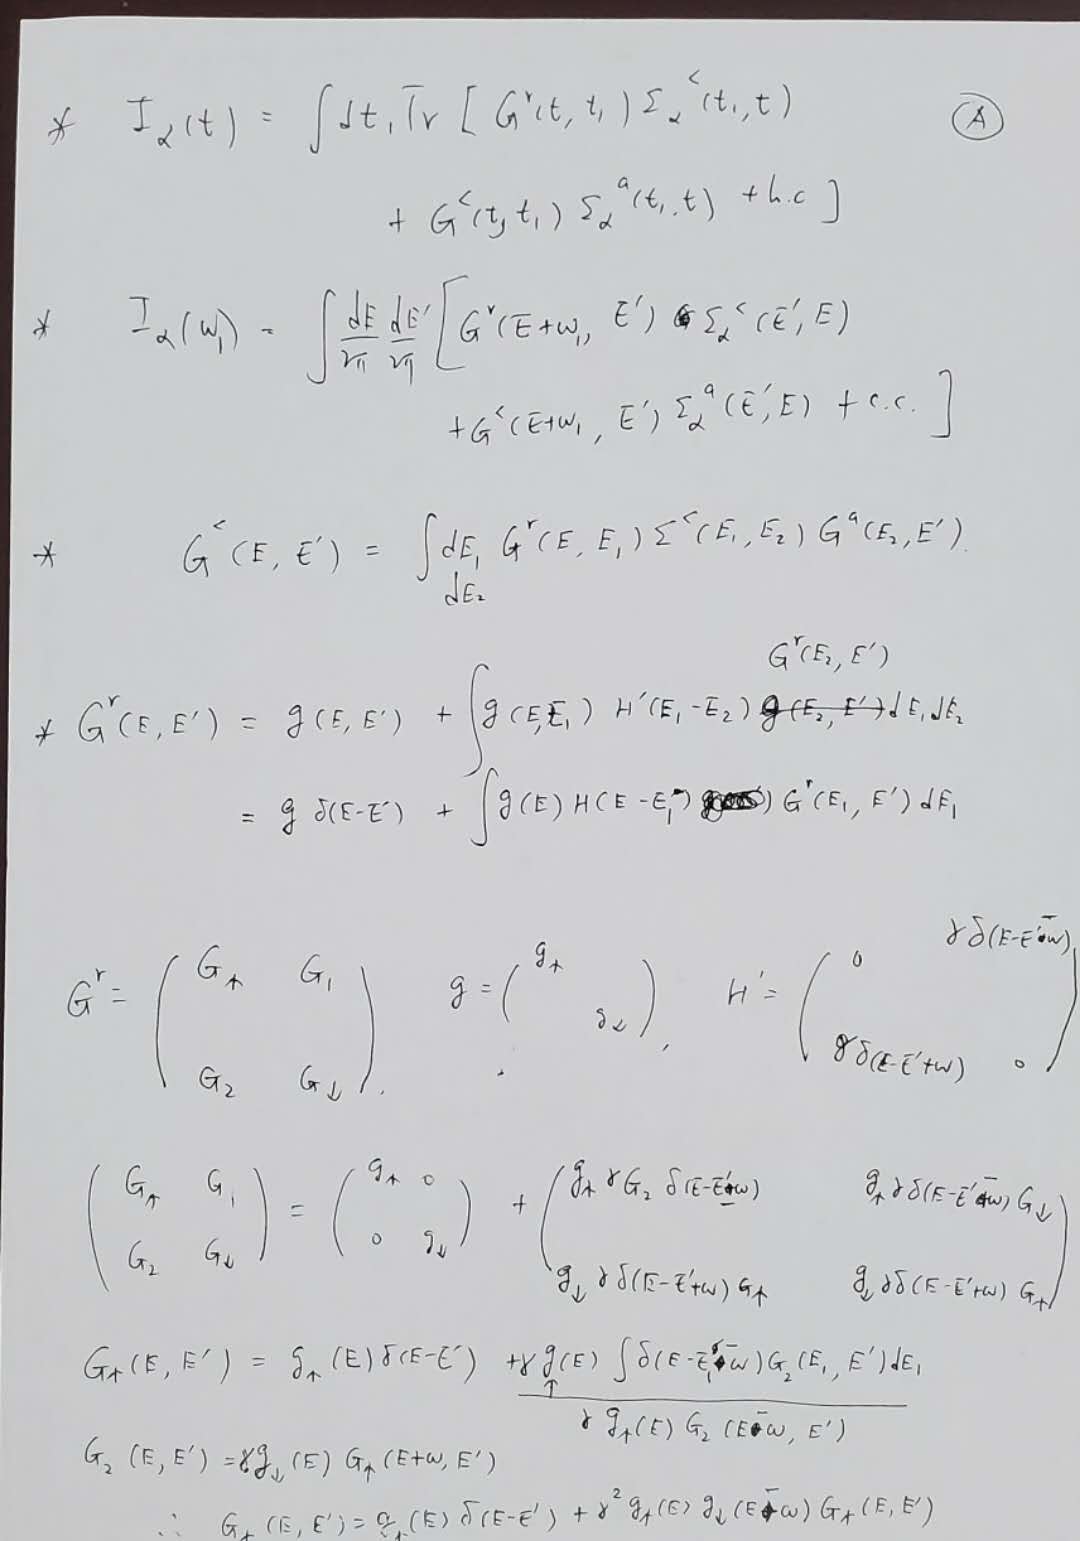 * I_α(t) = ∫dt₁ Tr [ G^r(t, t₁) Σ_α^<(t₁, t)
Ⓐ
+ G^<(t, t₁) Σ_α^a(t₁, t) + h.c ]
* I_α(ω₁) = ∫ dE/2π dE′/2π [ G^r(E+ω₁, E′) Σ_α^<(E′, E)
+ G^<(E+ω₁, E′) Σ_α^a(E′, E) + c.c. ]
* G^<(E, E′) = ∫dE₁ dE₂ G^r(E, E₁) Σ^<(E₁, E₂) G^a(E₂, E′).
G^r(E₂, E′)
* G^r(E, E′) = g(E, E′) + ∫g(E, E₁) H′(E₁ - E₂) g(E₂, E′) dE₁ dE₂
= g δ(E-E′) + ∫g(E) H(E - E₁) G^r(E₁, E′) dE₁
G^r = ( G↑ G₁ ; G₂ G↓ ). g = ( g↑ ; g↓ ), H′ = ( 0 γδ(E-E′-ω) ; γδ(E-E′+ω) 0 )
( G↑ G₁ ; G₂ G↓ ) = ( g↑ 0 ; 0 g↓ ) + ( g↑ γ G₂ δ(E-E′-ω) g↑ γδ(E-E′-ω) G↓ ; g↓ γδ(E-E′+ω) G↑ g↓ γδ(E-E′+ω) G↑ )
G↑(E, E′) = g↑(E) δ(E-E′) + γ g↑(E) ∫δ(E-E₁-ω) G₂(E₁, E′) dE₁
γ g↑(E) G₂(E-ω, E′)
G₂(E, E′) = γg↓(E) G↑(E+ω, E′)
∴ G↑(E, E′) = g↑(E) δ(E-E′) + γ² g↑(E) g↓(E-ω) G↑(E, E′)